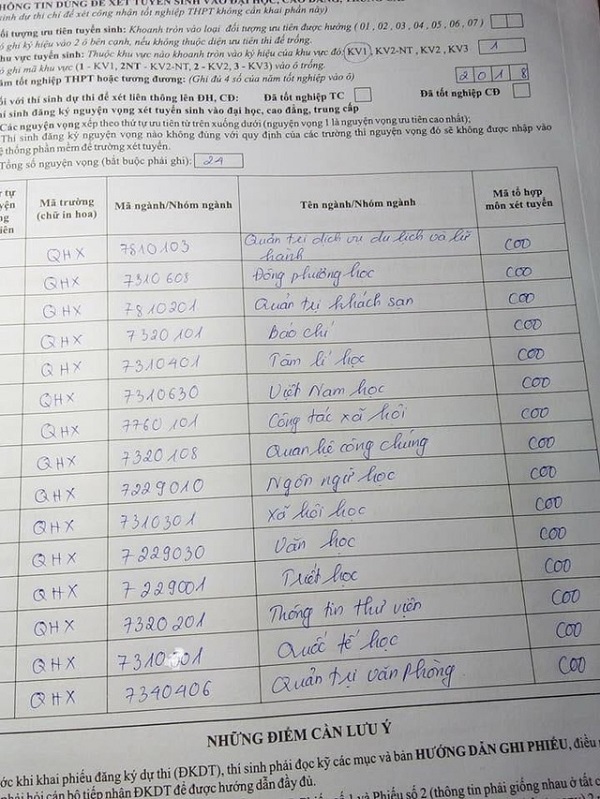 THÔNG TIN DÙNG ĐỂ XÉT TUYỂN SINH VÀO ĐẠI HỌC, CAO ĐẲNG,
sinh dự thi chỉ để xét công nhận tốt nghiệp THPT không cần khai phần này)
ối tượng ưu tiên tuyển sinh: Khoanh tròn vào loại đối tượng ưu tiên được hưởng ( 01 , 02 , 03 , 04 , 05 , 06 , 07 )
ó ghi ký hiệu vào 2 ô bên cạnh, nếu không thuộc diện ưu tiên thì để trống.
hu vực tuyển sinh: Thuộc khu vực nào khoanh tròn vào ký hiệu của khu vực đó: KV1, KV2-NT , KV2 , KV3 1
ó ghi mã khu vực (1 - KV1, 2NT - KV2-NT, 2 - KV2, 3 - KV3) vào ô trống.
ăm tốt nghiệp THPT hoặc tương đương: (Ghi đủ 4 số của năm tốt nghiệp vào ô) 2018
ối với thí sinh dự thi để xét liên thông lên ĐH, CĐ: Đã tốt nghiệp TC Đã tốt nghiệp CĐ
hí sinh đăng ký nguyện vọng xét tuyển sinh vào đại học, cao đẳng, trung cấp
Các nguyện vọng xếp theo thứ tự ưu tiên từ trên xuống dưới (nguyện vọng 1 là nguyện vọng ưu tiên cao nhất);
Thí sinh đăng ký nguyện vọng nào không đúng với quy định của các trường thì nguyện vọng đó sẽ không được nhập vào
ệ thống phần mềm để trường xét tuyển.
Tổng số nguyện vọng (bắt buộc phải ghi): 21
Mã trường (chữ in hoa) Mã ngành/Nhóm ngành Tên ngành/Nhóm ngành Mã tổ hợp môn xét tuyển
QHX 7810103 Quản trị dịch vụ du lịch và lữ hành C00
QHX 7310608 Đông phương học C00
QHX 7810201 Quản trị khách sạn C00
QHX 7320101 Báo chí C00
QHX 7310401 Tâm lí học C00
QHX 7310630 Việt Nam học C00
QHX 7760101 Công tác xã hội C00
QHX 7320108 Quan hệ công chúng C00
QHX 7229010 Ngôn ngữ học C00
QHX 7310301 Xã hội học C00
QHX 7229030 Văn học C00
QHX 7229001 Triết học C00
QHX 7320201 Thông tin thư viện C00
QHX Quốc tế học C00
QHX 7340406 Quản trị văn phòng C00
NHỮNG ĐIỂM CẦN LƯU Ý
ớc khi khai phiếu đăng ký dự thi (ĐKDT), thí sinh phải đọc kỹ các mục và bản HƯỚNG DẪN GHI PHIẾU, điều
phải hỏi cán bộ tiếp nhận ĐKDT để được hướng dẫn đầy đủ.
số 1 và Phiếu số 2 (thông tin phải giống nhau ở tất c